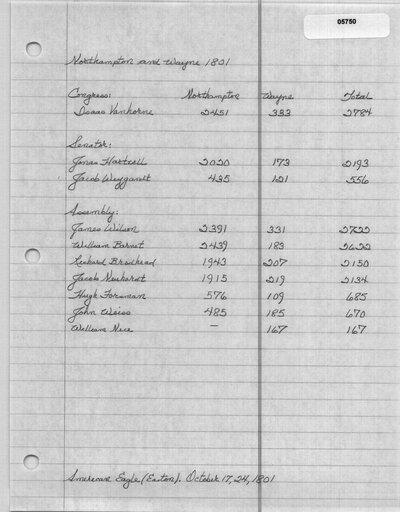 05750
Northampton and Wayne 1801
Congress: Northampton Wayne Total
Isaac Vanhorne 2451 333 2784
Senator:
Jonas Hartzell 2020 173 2193
Jacob Weygandt 435 121 556
Assembly:
James Wilson 2391 331 2722
William Barnet 2439 183 2622
Richard Brodhead 1943 207 2150
Jacob Newhardt 1915 219 2134
Hugh Forsman 576 109 685
John Weiss 485 185 670
William — 167 167
American Eagle (Easton). October 17, 24, 1801